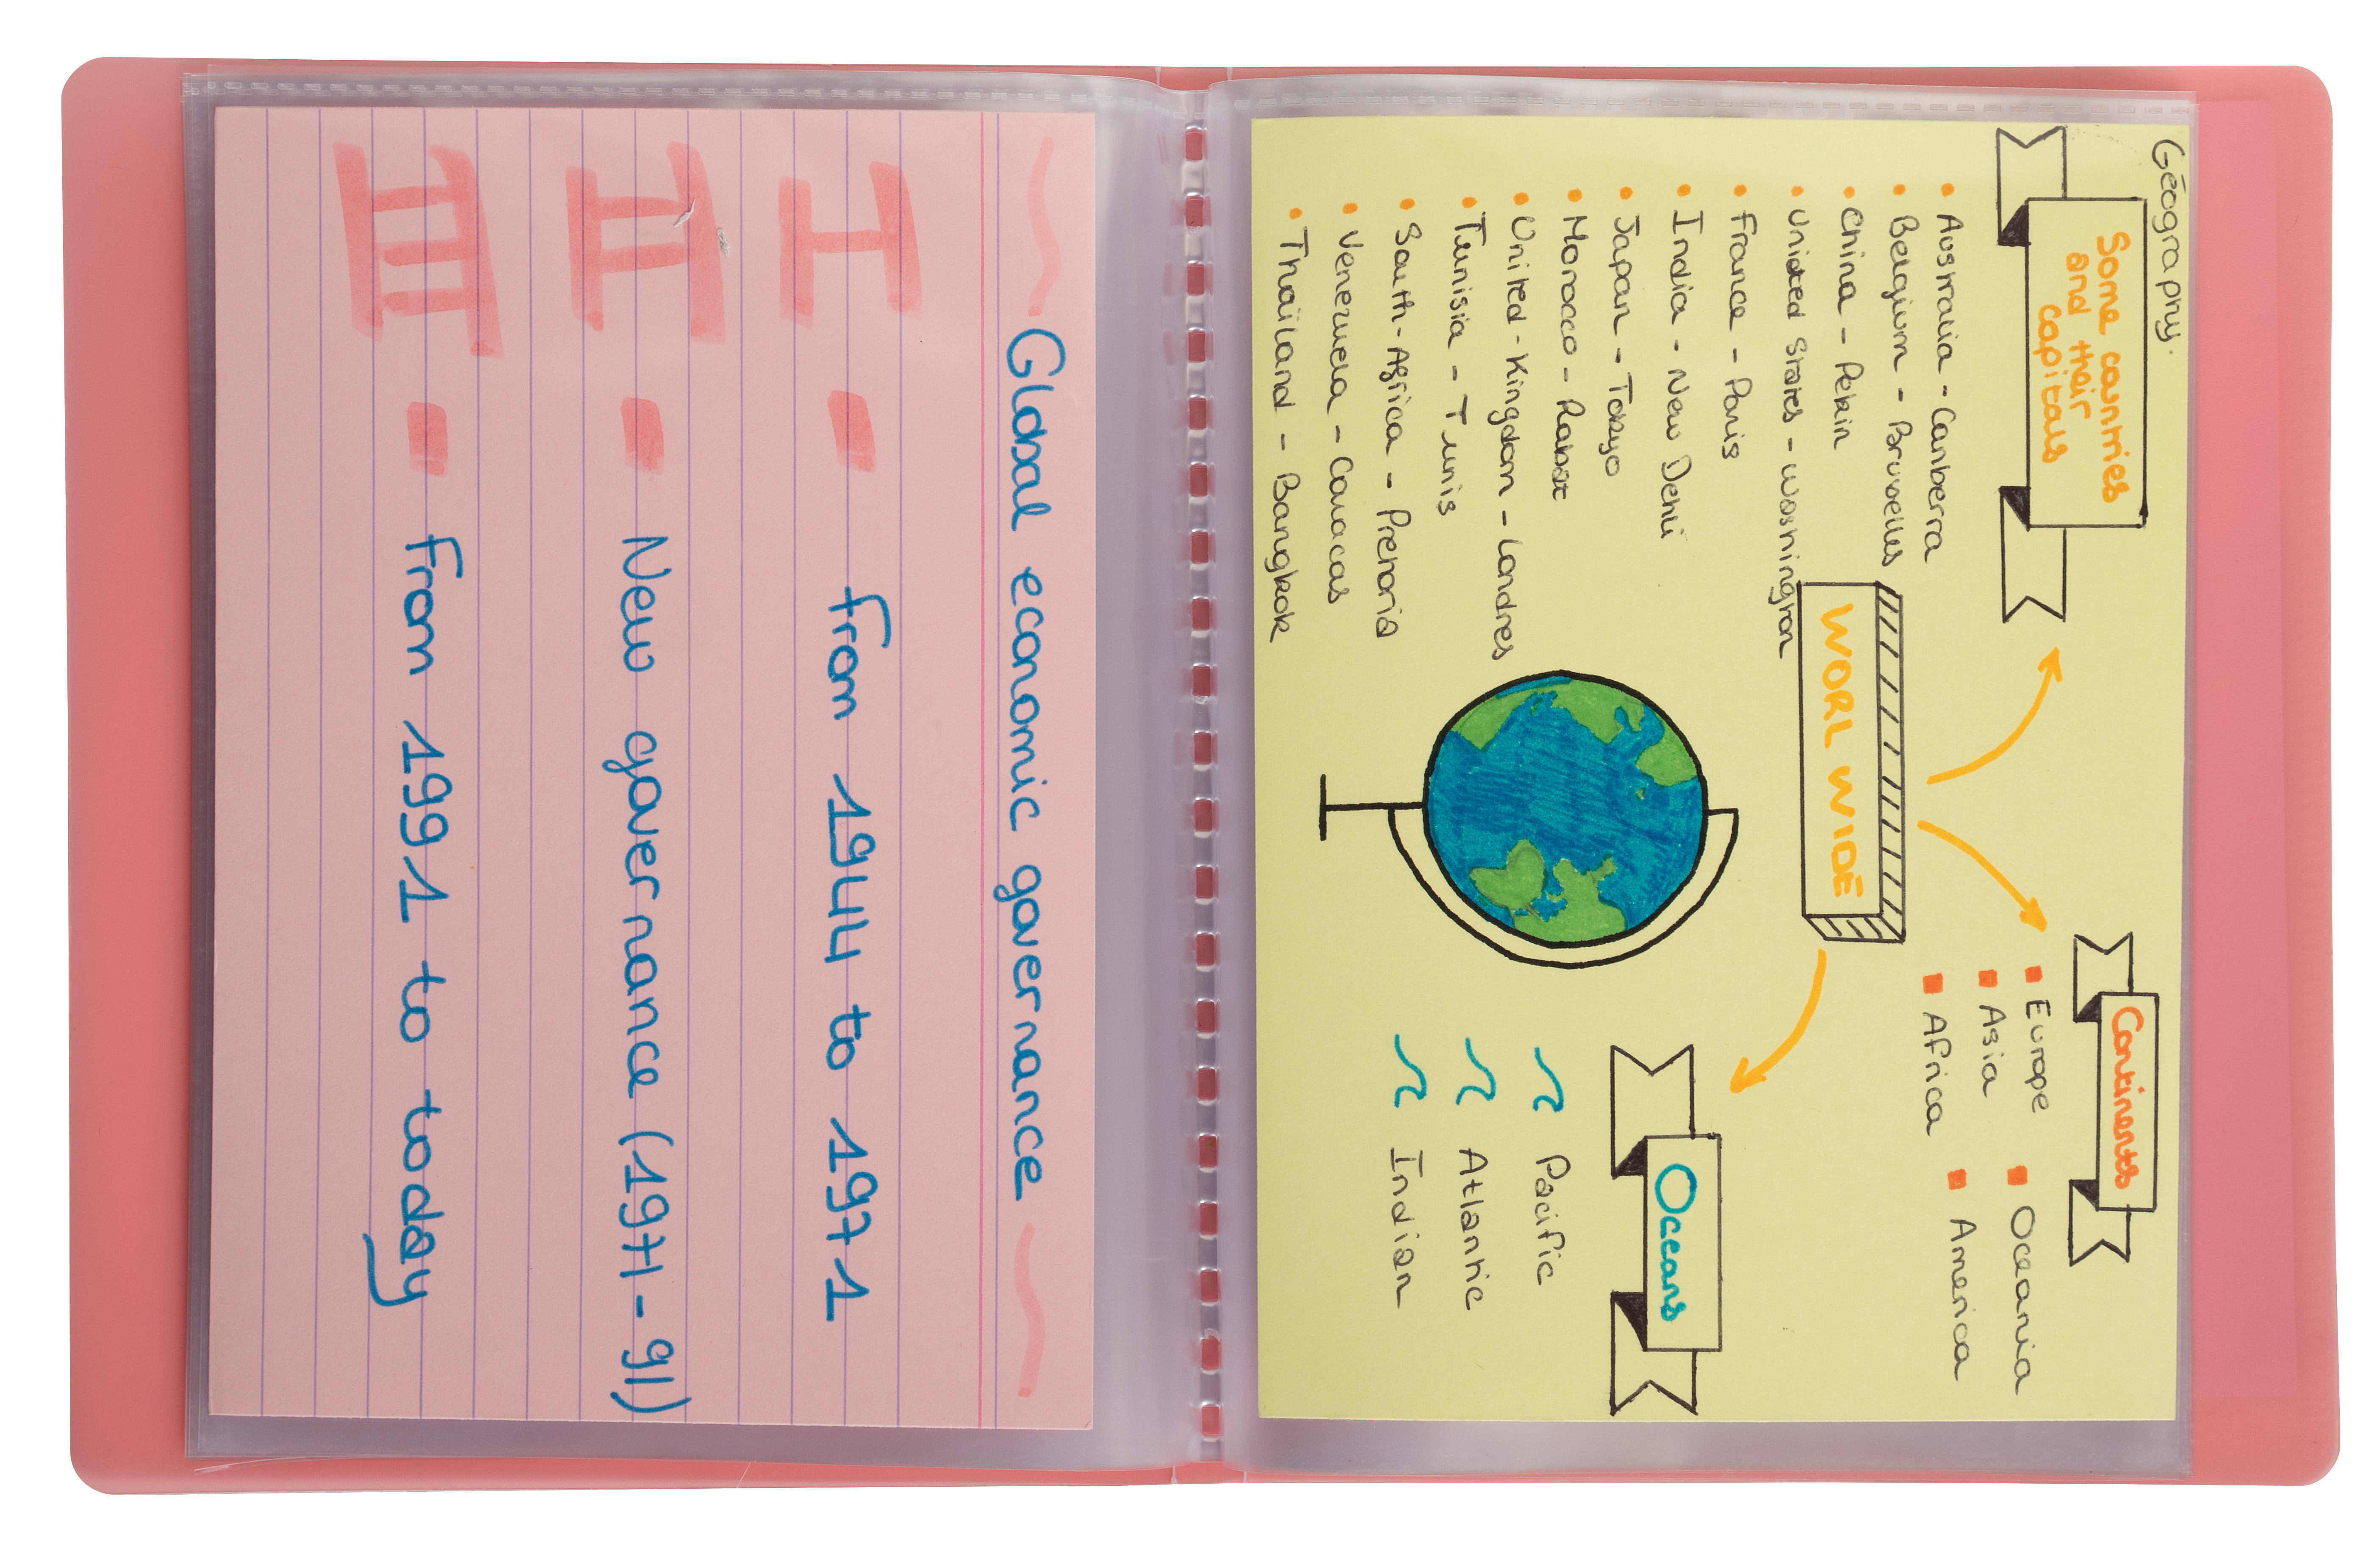 Global economic governance
I - from 1944 to 1971
II - New governance (1971-91)
III - From 1991 to today
Géography.
Some countries
and their
capitals
Australia - Canberra
Belgium - Bruxelles
China - Pekin
United States - Washington
France - Paris
India - New Dehli
Japan - Tokyo
Morocco - Rabat
United-Kingdom - Londres
Tunisia - Tunis
South-Africa - Pretoria
Venezuela - Caracas
Thaïland - Bangkok
WORL WIDE
Continents
Europe
Asia
Africa
Oceania
America
Oceans
Pacific
Atlantic
Indian